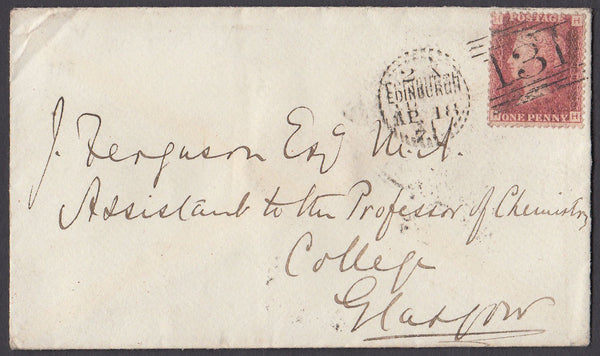 POSTAGE
131
ONE PENNY
EDINBURGH
AP 18
71
J. Ferguson Esq M.A.
Assistant to the Professor of Chemistry
College
Glasgow